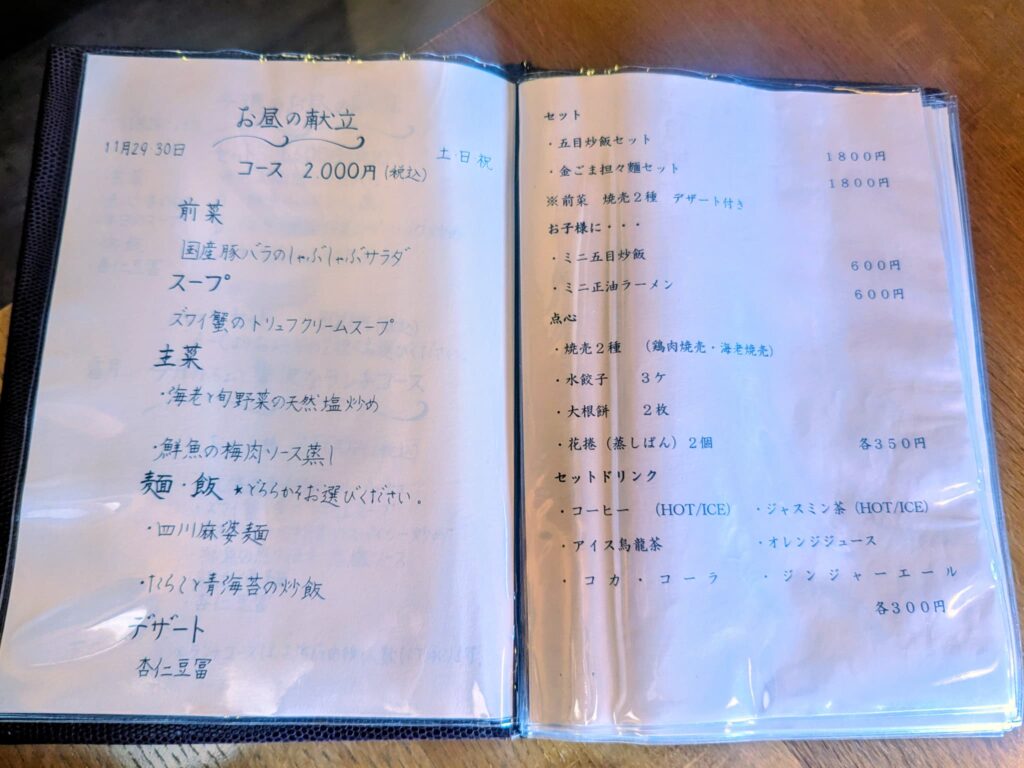 お昼の献立
11月29 30日
土・日 祝
コース 2.000円(税込)
前菜
国産豚バラのしゃぶしゃぶサラダ
スープ
ズワイ蟹のトリュフクリームスープ
主菜
・海老と旬野菜の天然塩炒め
・鮮魚の梅肉ソース蒸し
麺・飯 *どちらかをお選びください。
・四川麻婆麺
・たらこと青海苔の炒飯
デザート
杏仁豆冨
セット
・五目炒飯セット 1800円
・金ごま担々麺セット 1800円
※前菜 焼売2種 デザート付き
お子様に・・・
・ミニ五目炒飯 600円
・ミニ正油ラーメン 600円
点心
・焼売2種 (鶏肉焼売・海老焼売)
・水餃子 3ケ
・大根餅 2枚
・花捲(蒸しぱん)2個 各350円
セットドリンク
・コーヒー (HOT/ICE) ・ジャスミン茶(HOT/ICE)
・アイス烏龍茶 ・オレンジジュース
・コカ・コーラ ・ジンジャーエール
各300円